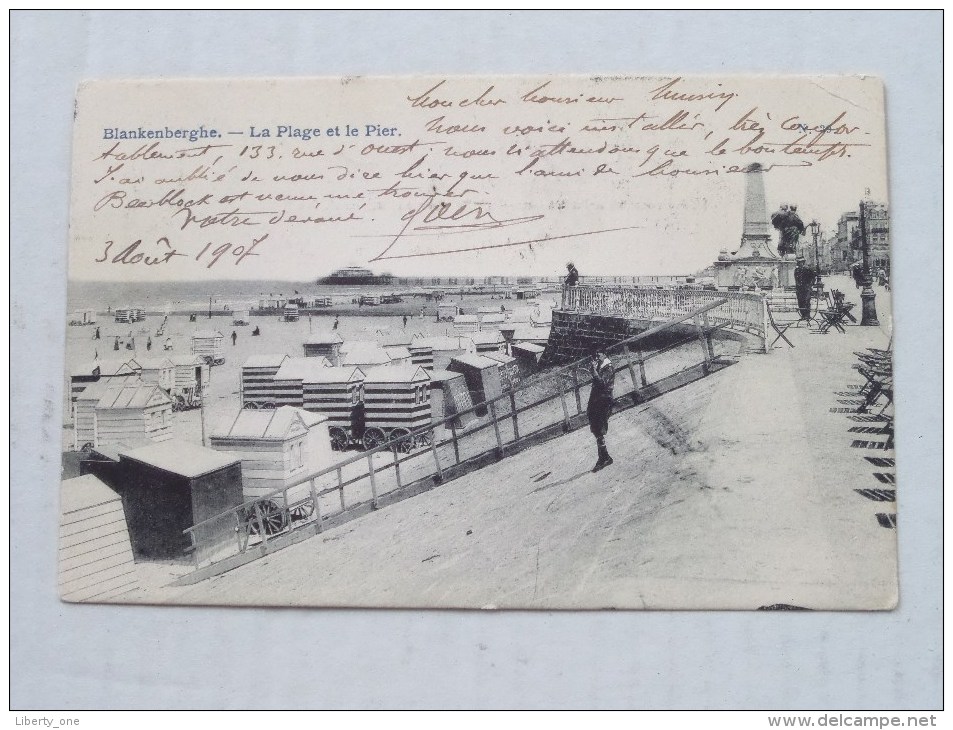 Mon cher Monsieur
Blankenberghe. — La Plage et le Pier.
Nous voici installés, très confor-
tablement, 133. rue d'Ouest; nous n'attendons que le bon temps.
J'ai oublié de vous dire hier que l'ami de Monsieur
Beerblock est venu me trouver.
Votre dévoué.
3 Août 1907
Liberty_one
www.delcampe.net